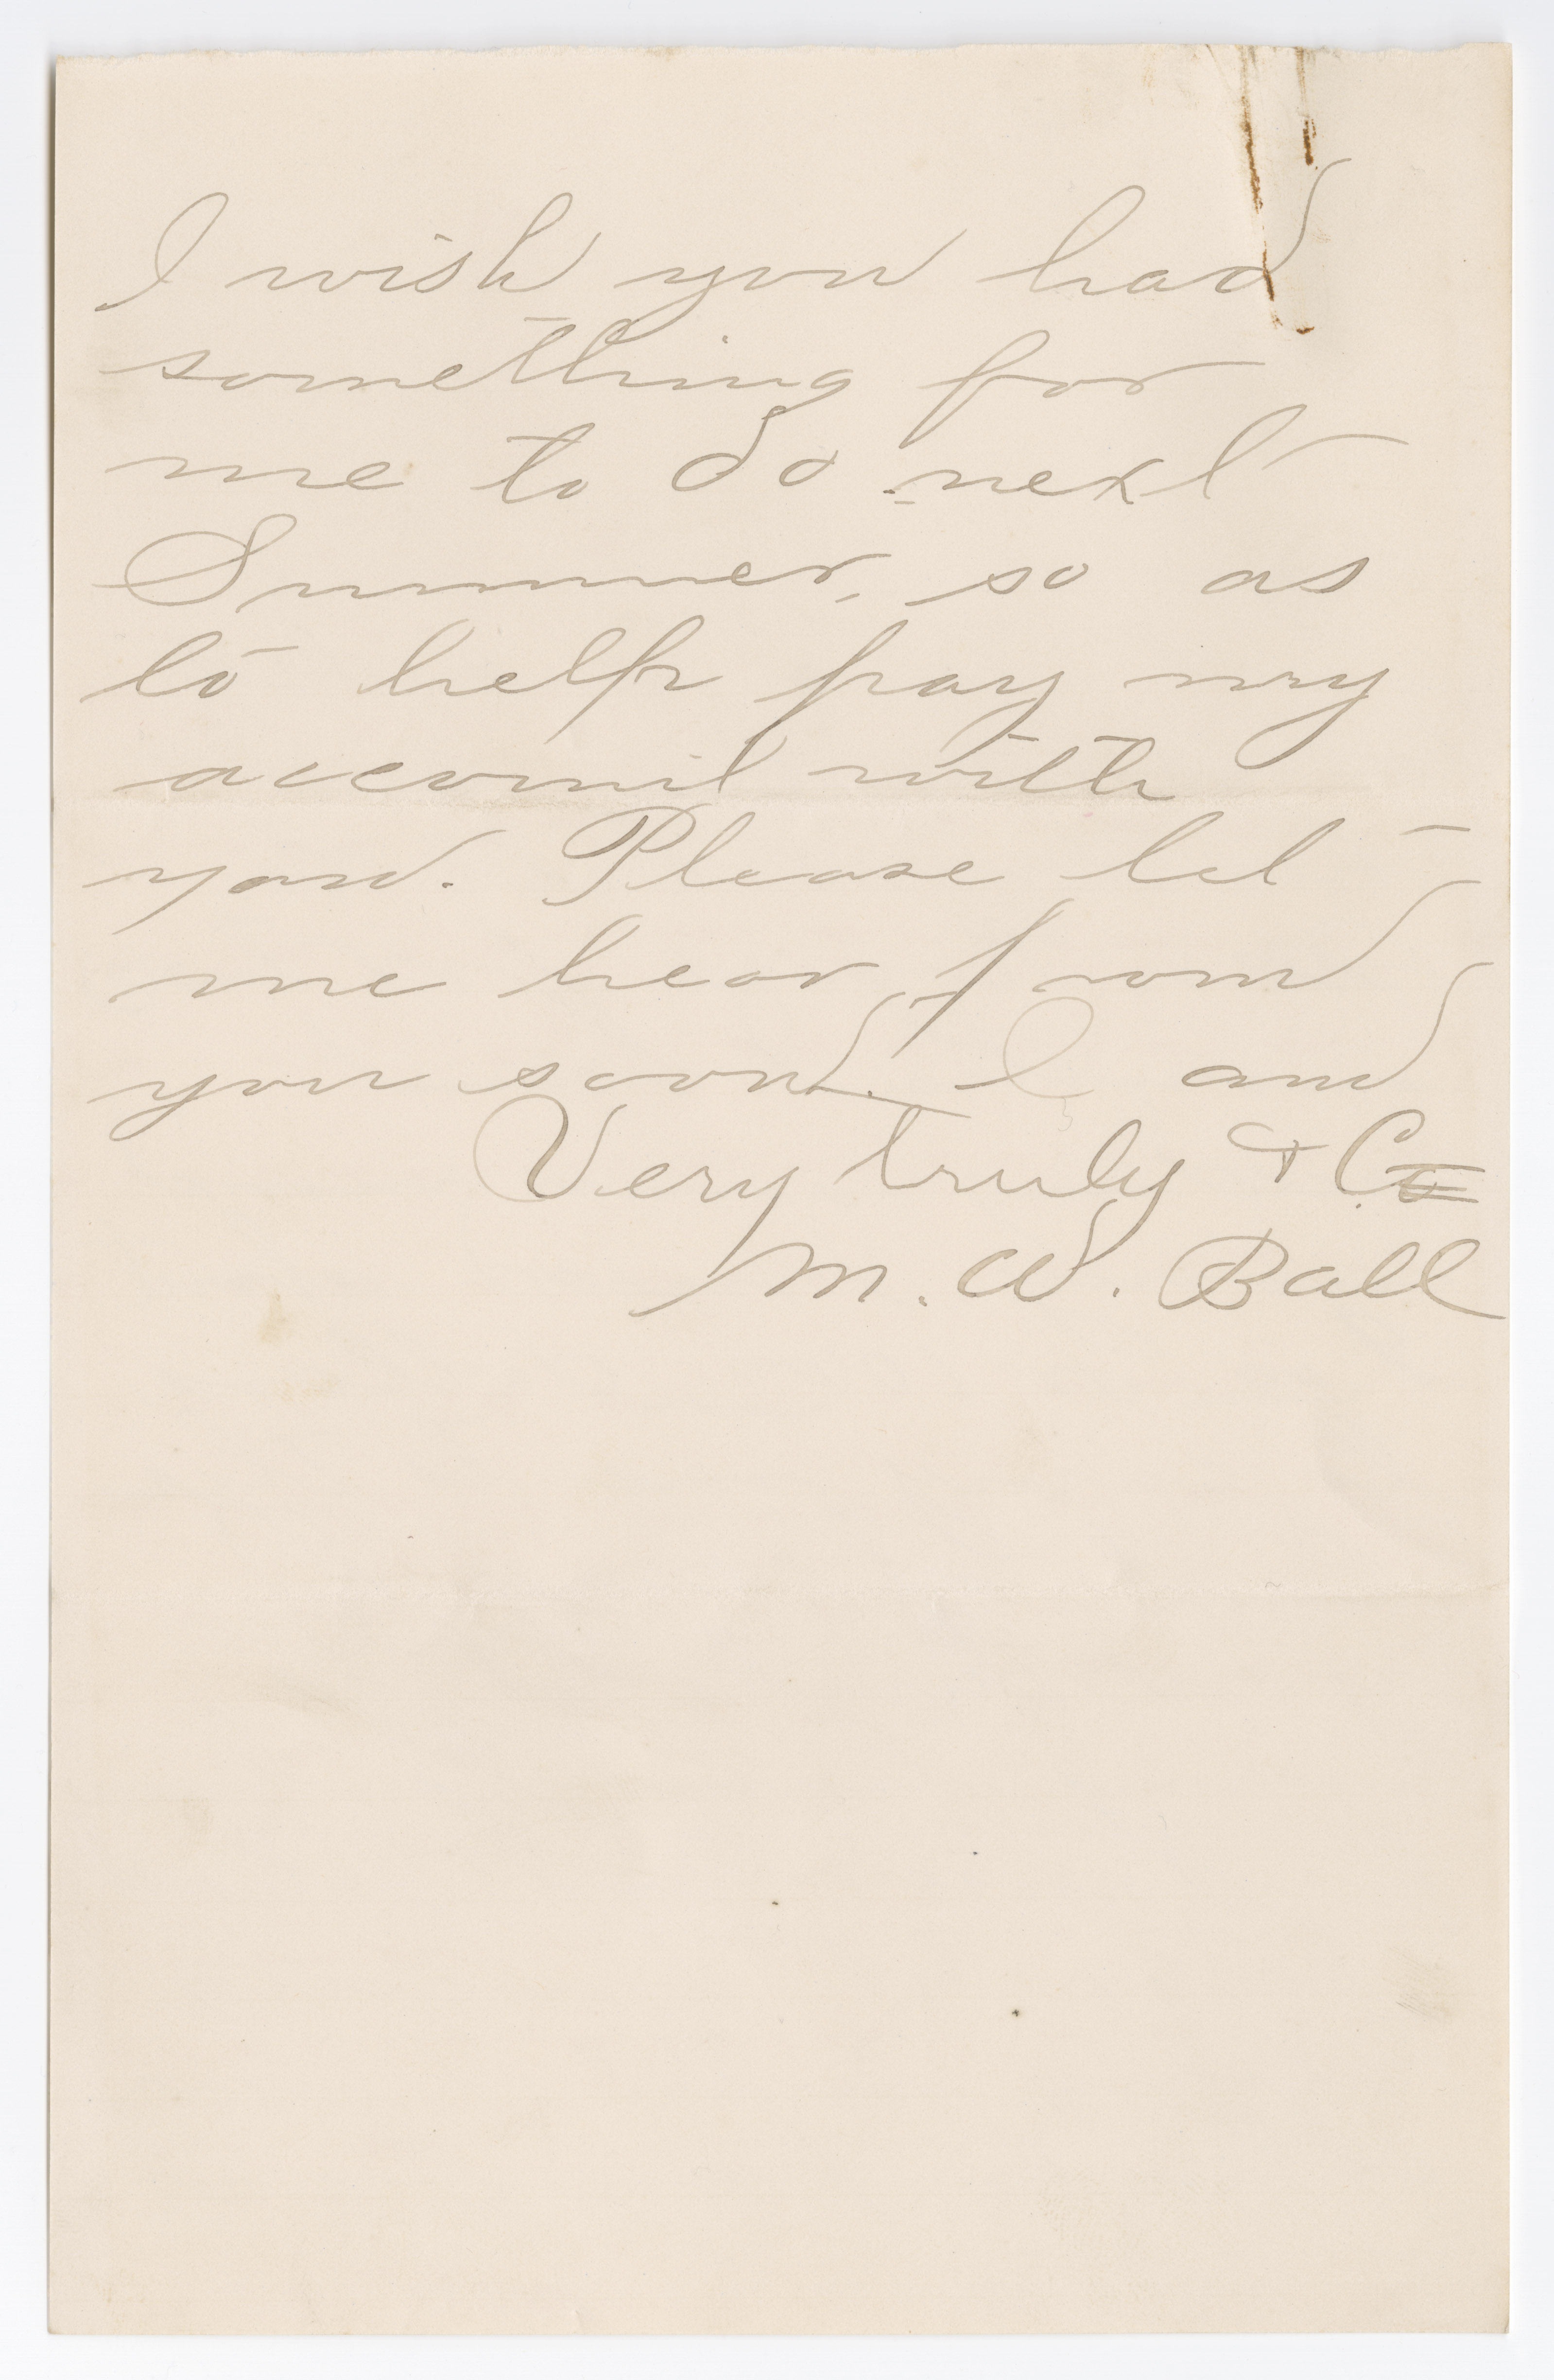 I wish you had
something for
me to do next
Summer, so as
to help pay my
account with
you. Please let
me hear from
you soon. I am
Very truly & Co
M. W. Ball